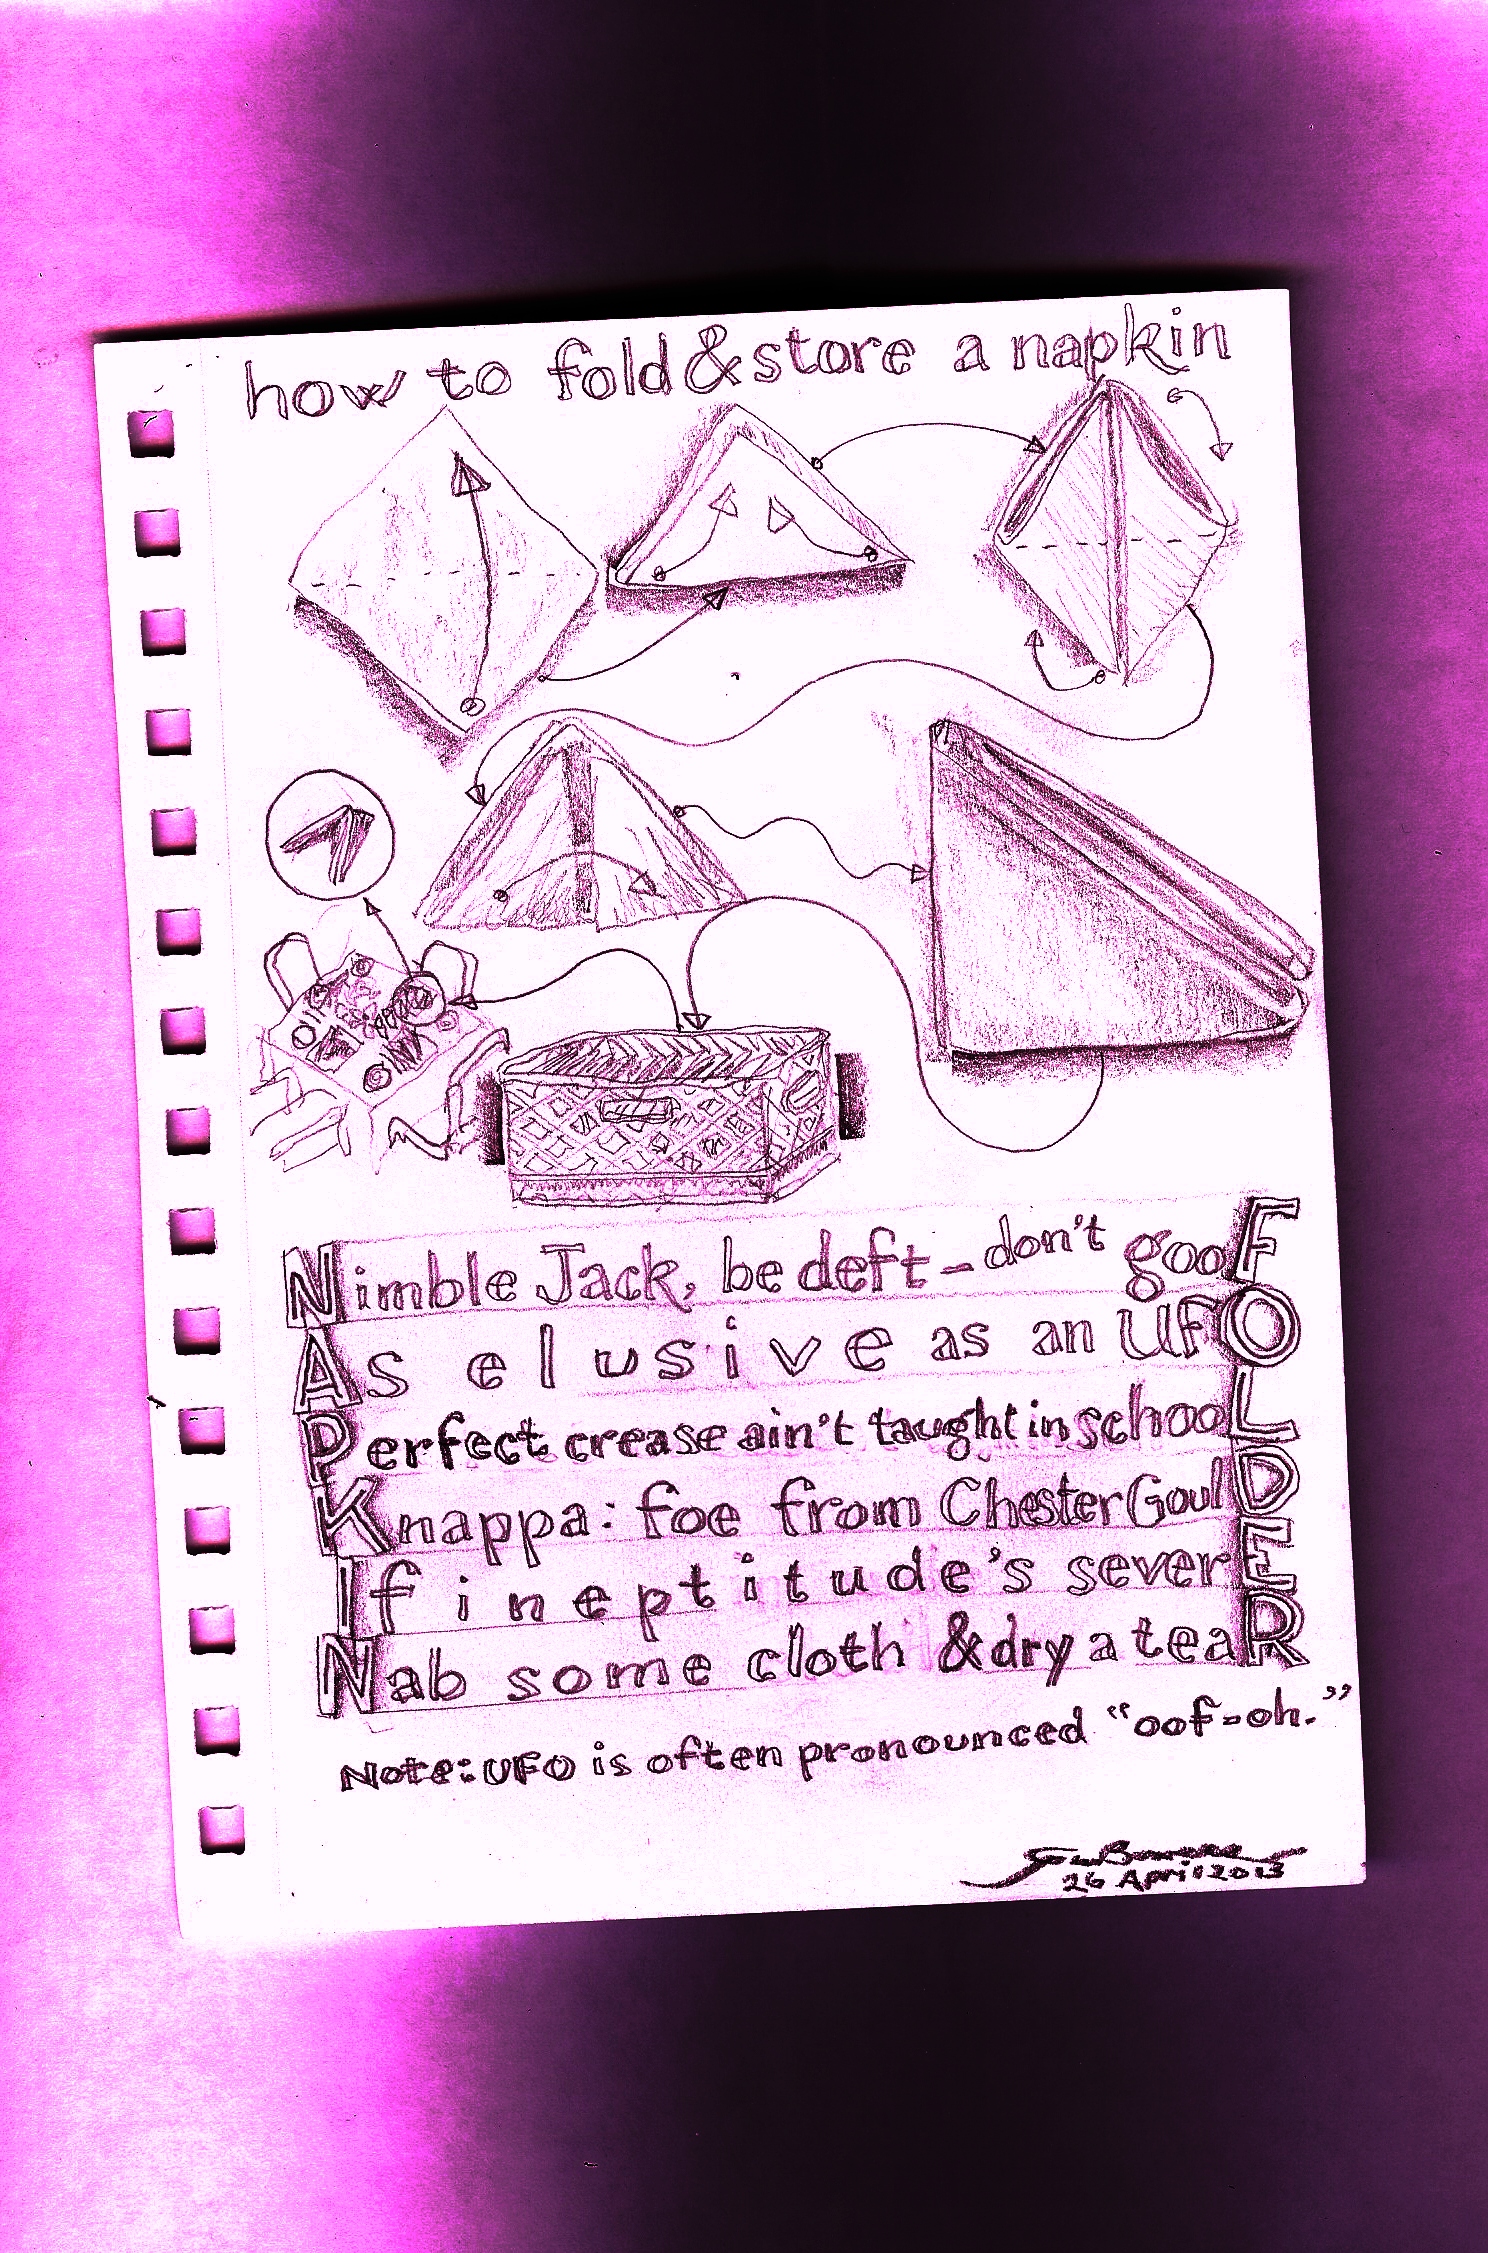 how to fold & store a napkin
Nimble Jack, be deft – don't gooF
As elusive as an UFO
Perfect crease ain't taught in schooL
Knappa: foe from Chester GoulD
If ineptitude's severE
Nab some cloth & dry a teaR
Note: UFO is often pronounced "oof-oh."
26 April 2013